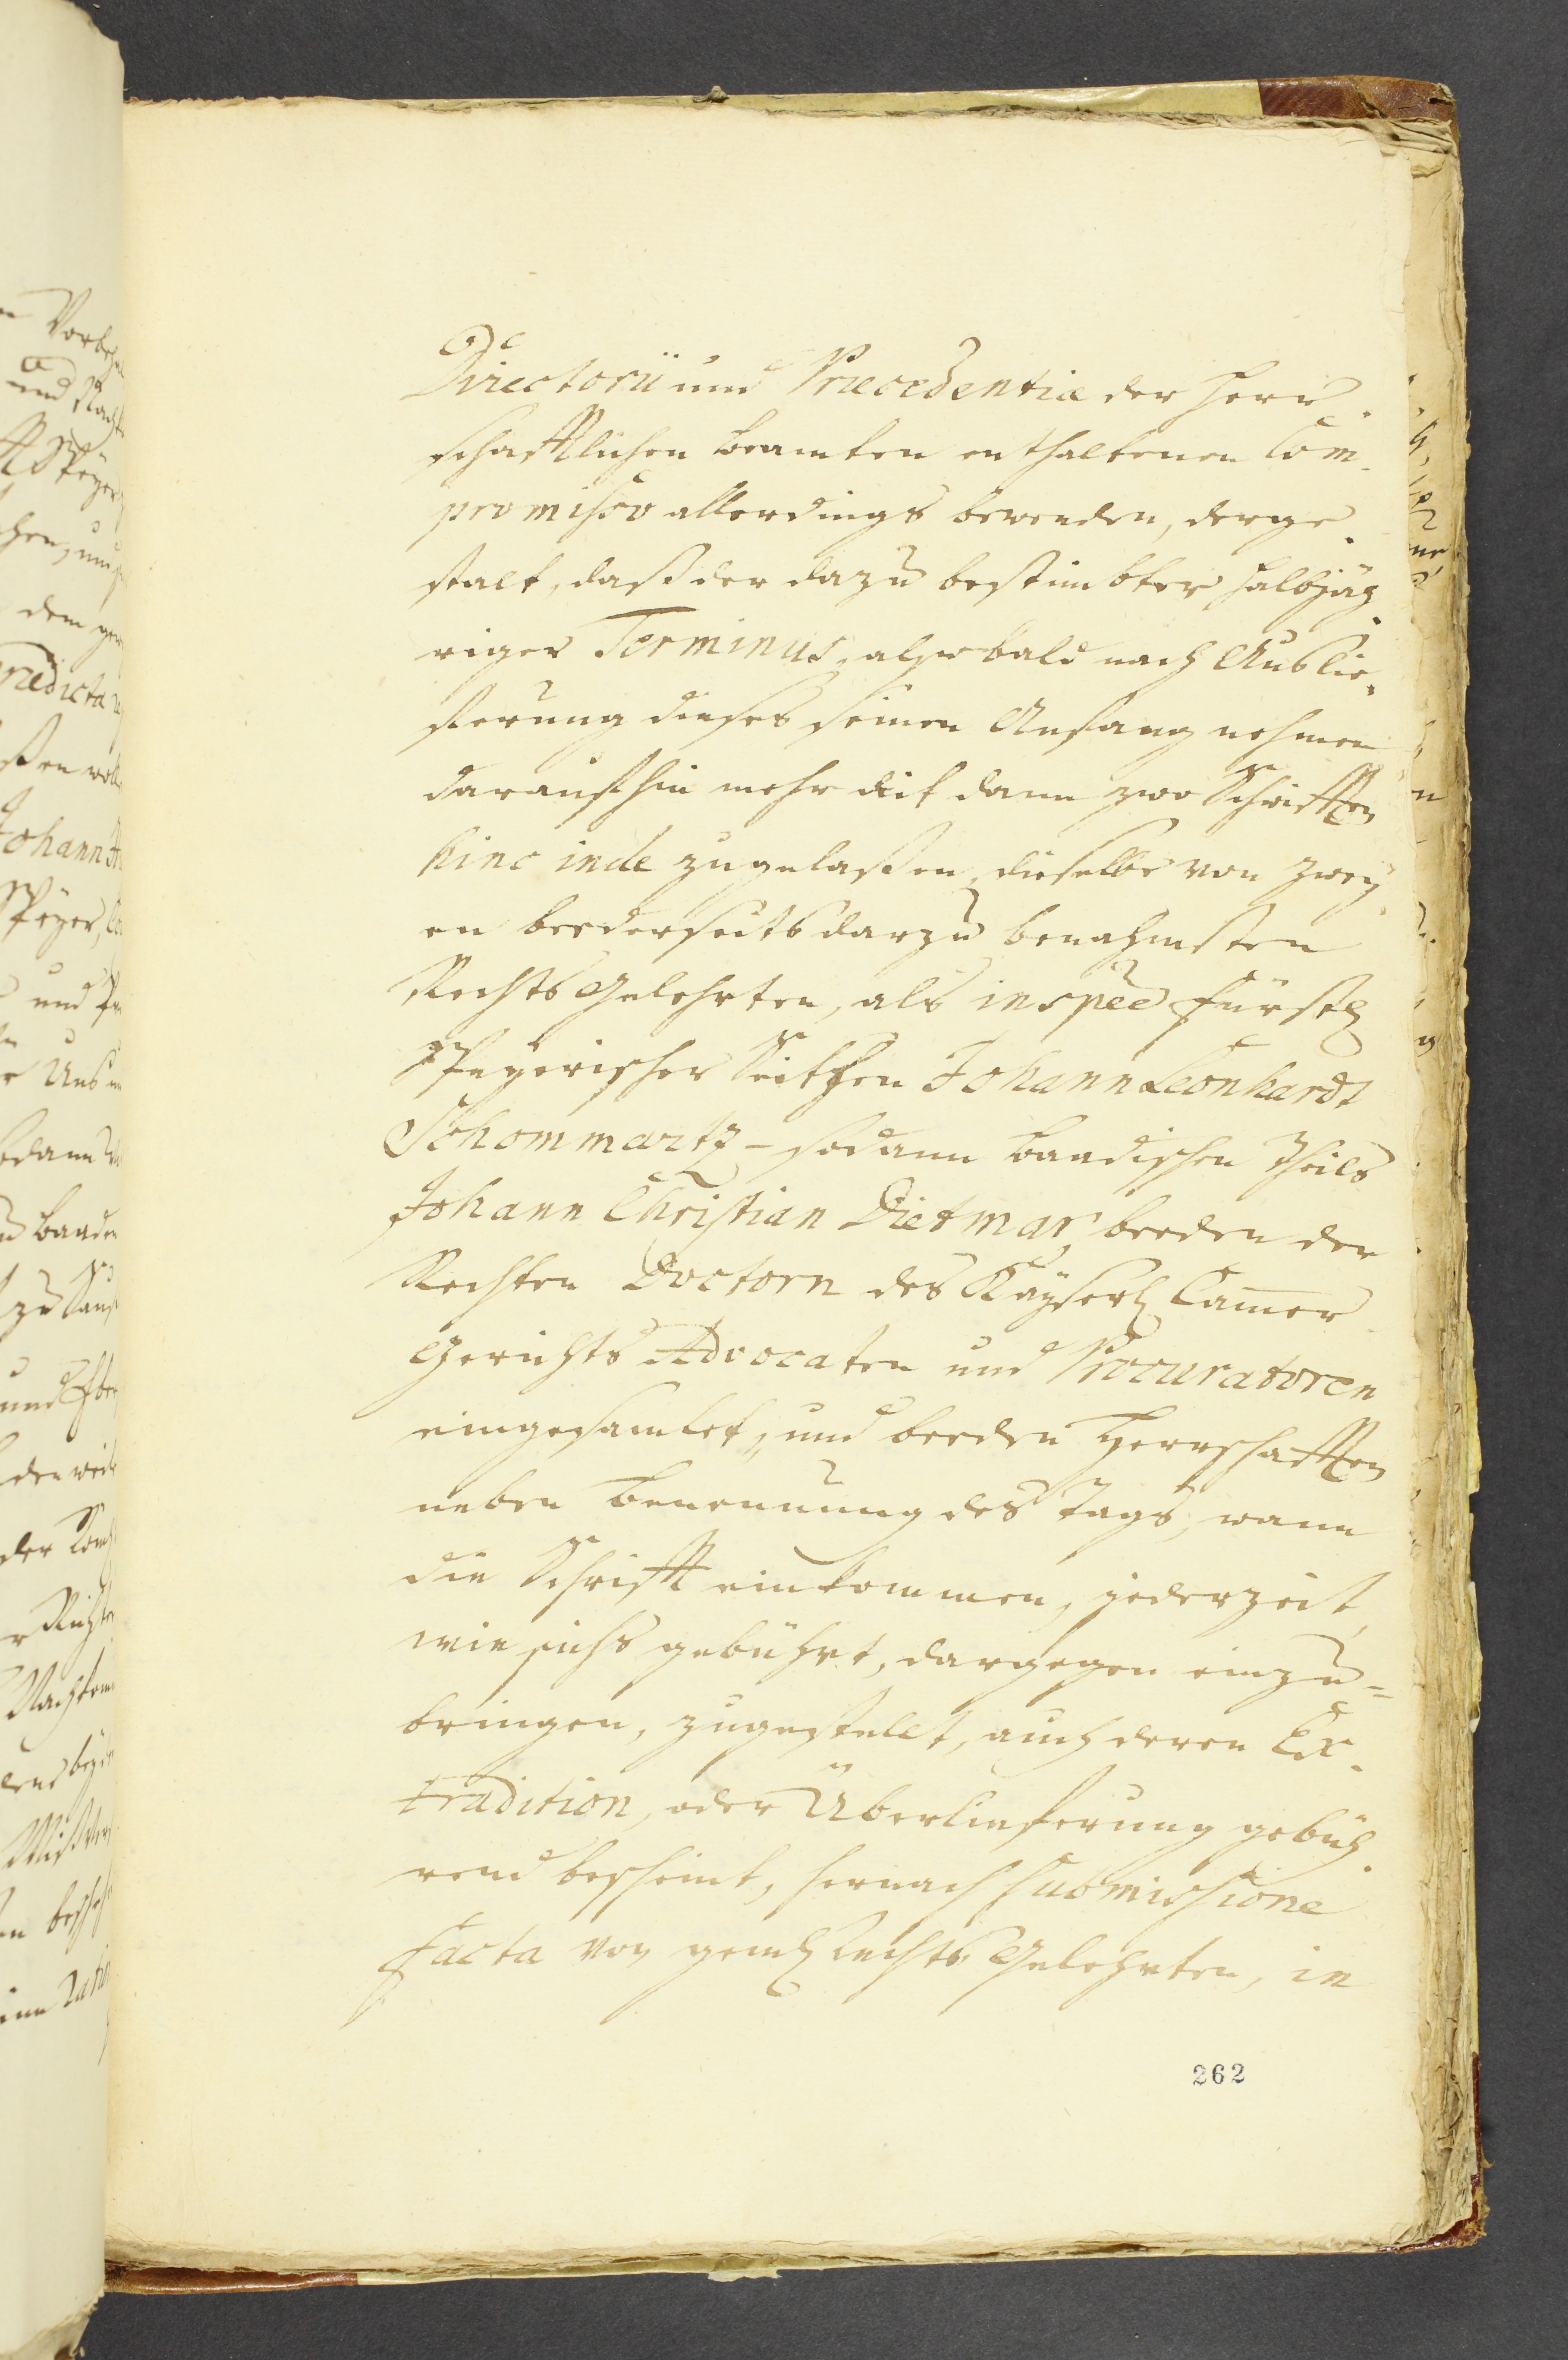 Directorii und Præcedentiæ der Herr
schafftlichen Beamten enthaltenen Com
promisso allerdings bewenden, derge
stalt, daß der dazu bestimbter halbjäh
riger Terminus, alsobald nach Außlie
ferung dieses seinen Anfang nehmen
darauf hin mehr nit dann zwo Schrifften
hinc inde zugelaßen, dieselbe von zwey
en beederseits darzu benahmsten
Rechts Gelehrten, als in specie Fürstl
Speyerischer Seithen Johann Leonhardt
Schommartz - sodann Baadischen Theils
Johann Christian Dietmar, beeden der
Rechten Doctorn des Kayserl Camer
Gerichts Advocaten und Procuratoren
eingesamlet, und beeden Herrschafften
neben Benennung des Tags, wann
die Schrifft einkommen, jederzeit,
wie sichs gebührt, dargegen einzu=
bringen, zugestellt, auch deren Ex
tradition, oder Überlieferung gebüh
rend bescheint, hernach Submissione
facta von geml Rechts Gelehrten, in
262